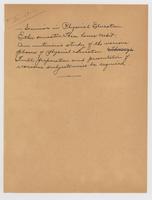 Seminar in Physical Education
Either semester. Two hours credit.
An intensive study of the various
phases of Physical Education
Careful preparation and presentation of
various subjects will be required